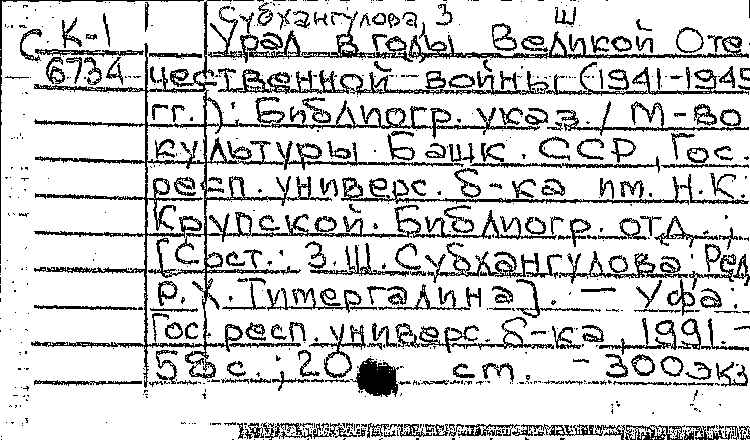 Субхангулова, З Ш
С К-1 Урал в годы Великой Оте-
6734 чественной войны (1941-1945
гг.): Библиогр. указ. / М-во
культуры Башк. ССР, Гос.
респ. универс. б-ка им. Н.К.
Крупской. Библиогр. отд.;
[Сост.: З.Ш. Субхангулова; Ред.
Р.Х. Тимергалина]. — Уфа:
Гос. респ. универс. б-ка, 1991. -
58 с.; 20 см. - 300 экз